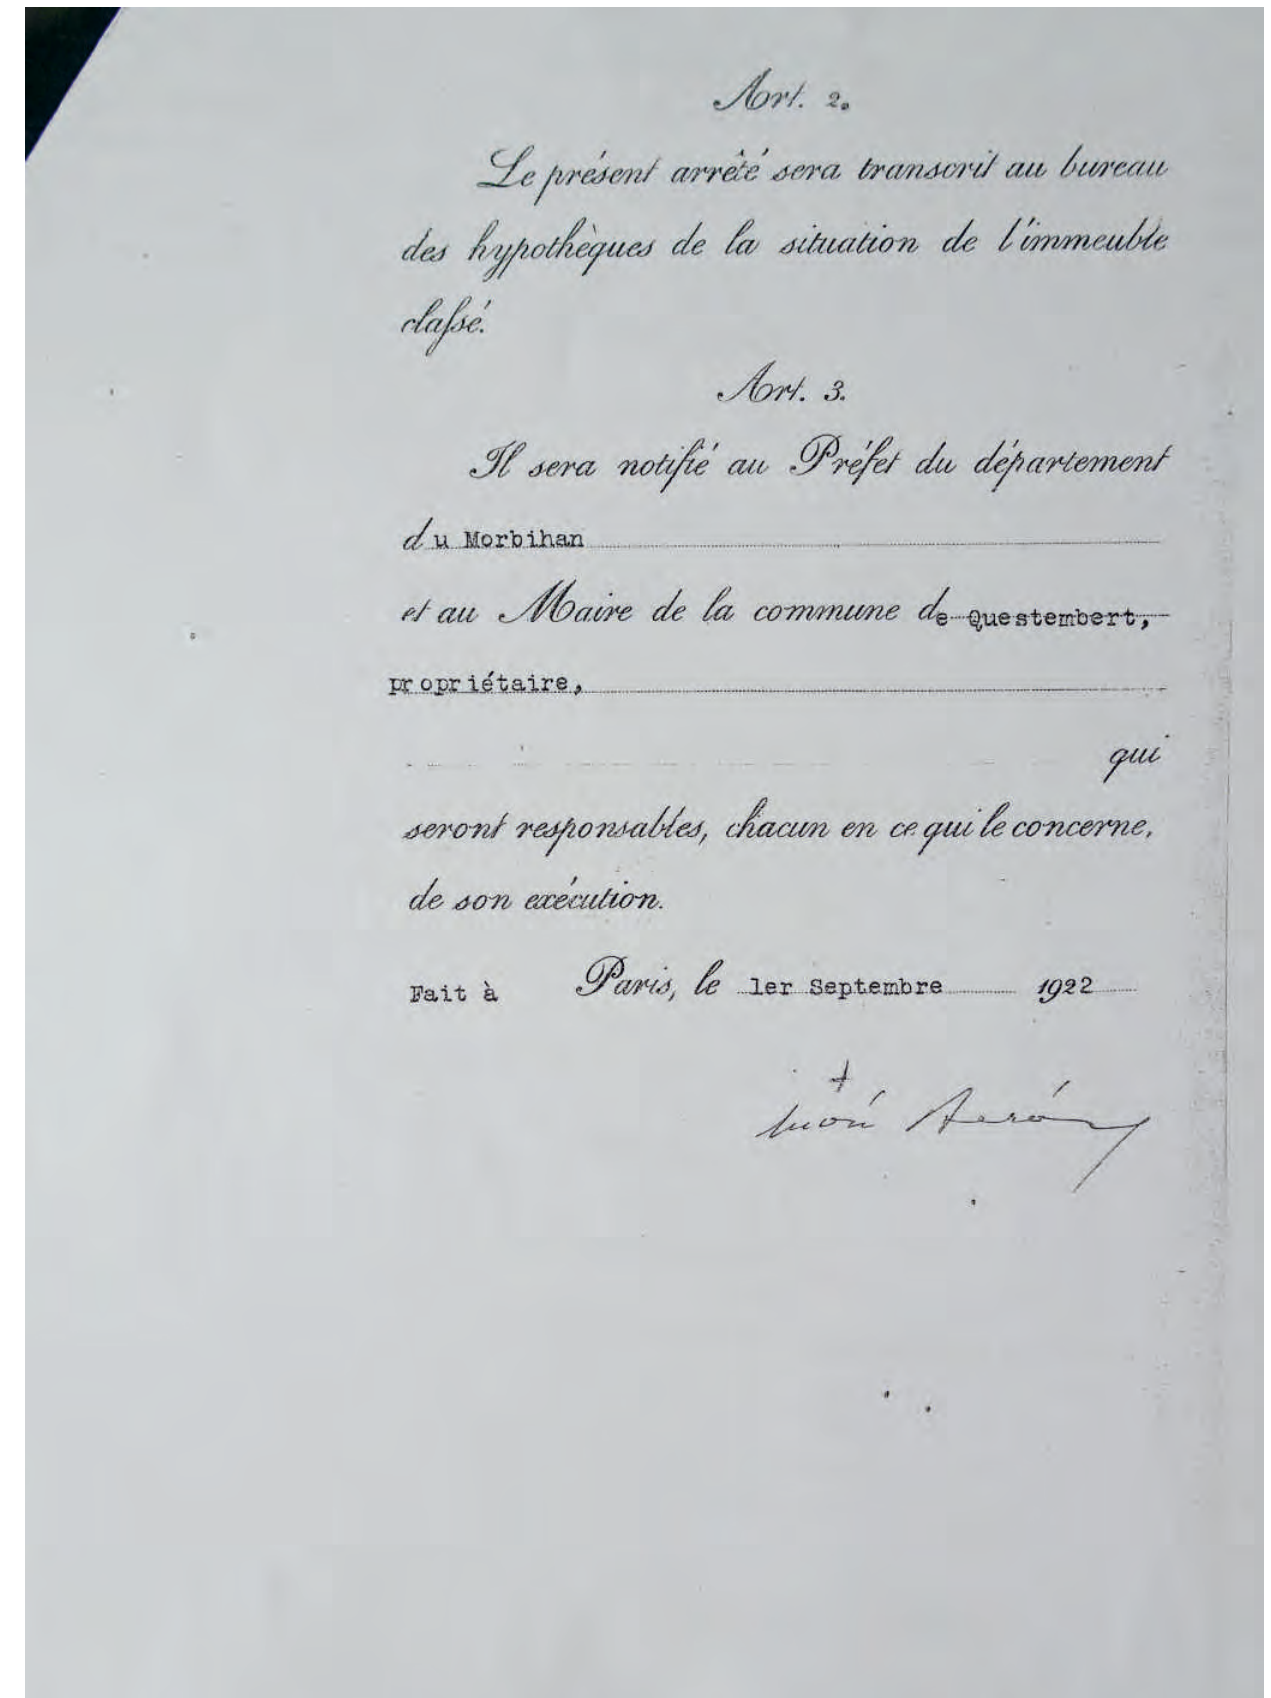 Art. 2.
Le présent arrêté sera transcrit au bureau
des hypothèques de la situation de l'immeuble
classé.
Art. 3.
Il sera notifié au Préfet du département
du Morbihan
et au Maire de la commune de Questembert,
propriétaire,
qui
seront responsables, chacun en ce qui le concerne,
de son exécution.
Fait à Paris, le 1er Septembre 1922